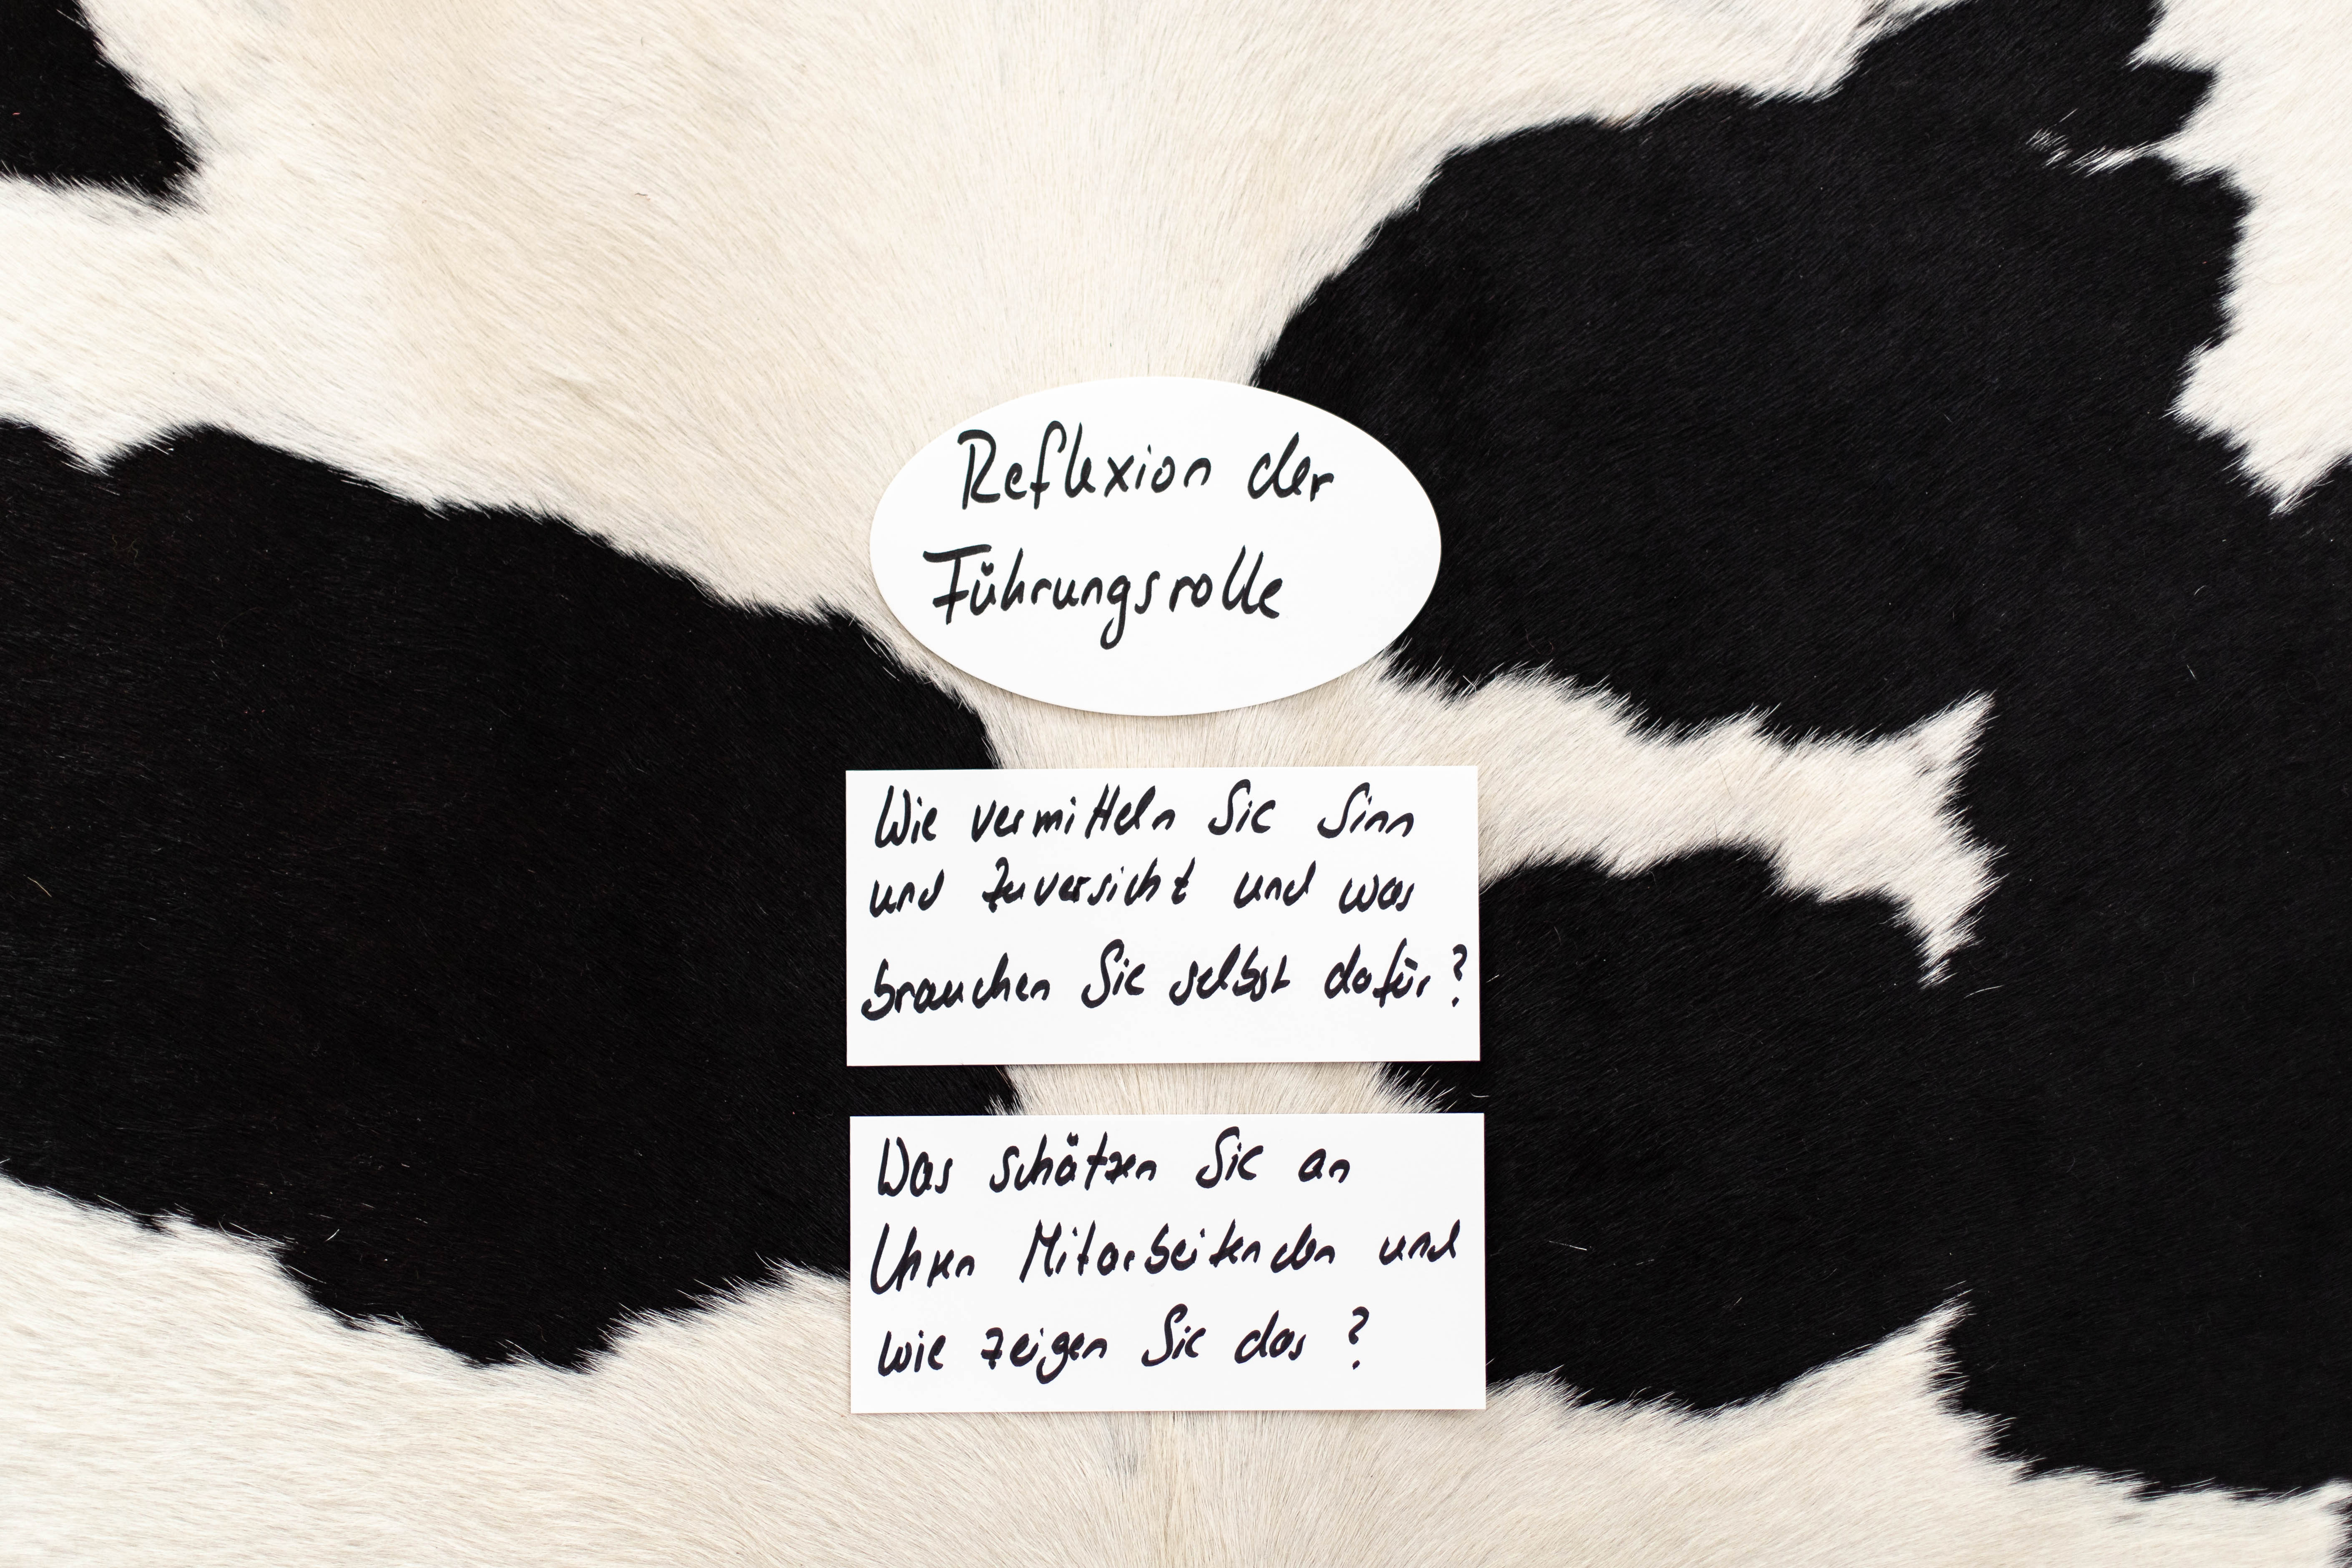 Reflexion der
Führungsrolle
Wie vermitteln Sie Sinn
und Zuversicht und was
brauchen Sie selbst dafür?
Was schätzen Sie an
Ihren Mitarbeitenden und
wie zeigen Sie das?